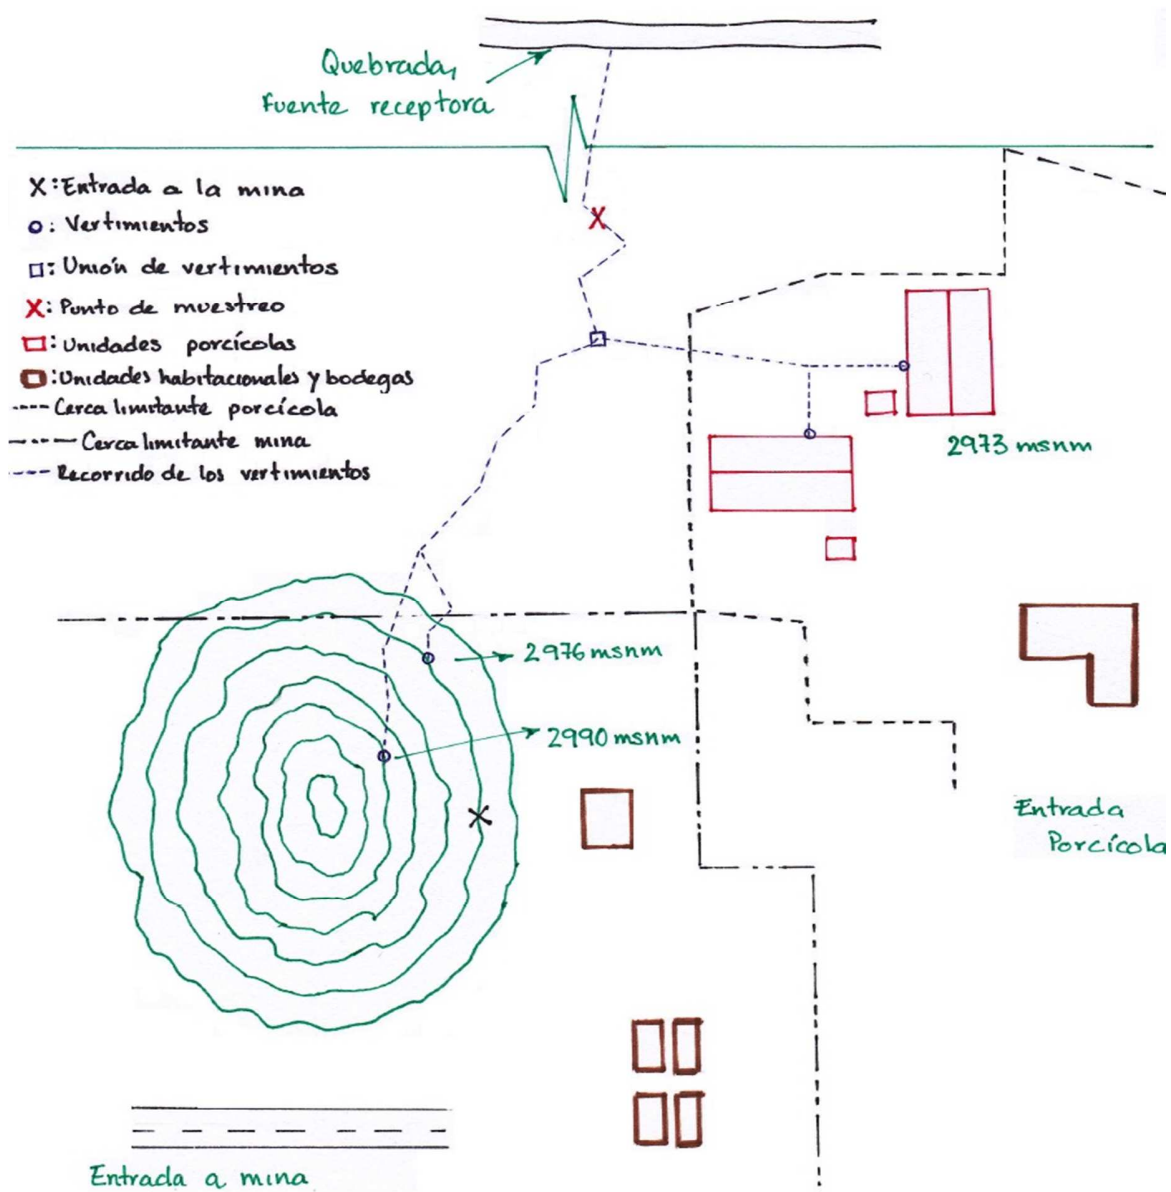 Quebrada,
Fuente receptora
X: Entrada a la mina
o: Vertimientos
□: Unión de vertimientos
X: Punto de muestreo
□: Unidades porcícolas
□: Unidades habitacionales y bodegas
---- Cerca limitante porcícola
—--— Cerca limitante mina
---- Recorrido de los vertimientos
2973 msnm
2976 msnm
2990 msnm
Entrada
Porcícola
Entrada a mina